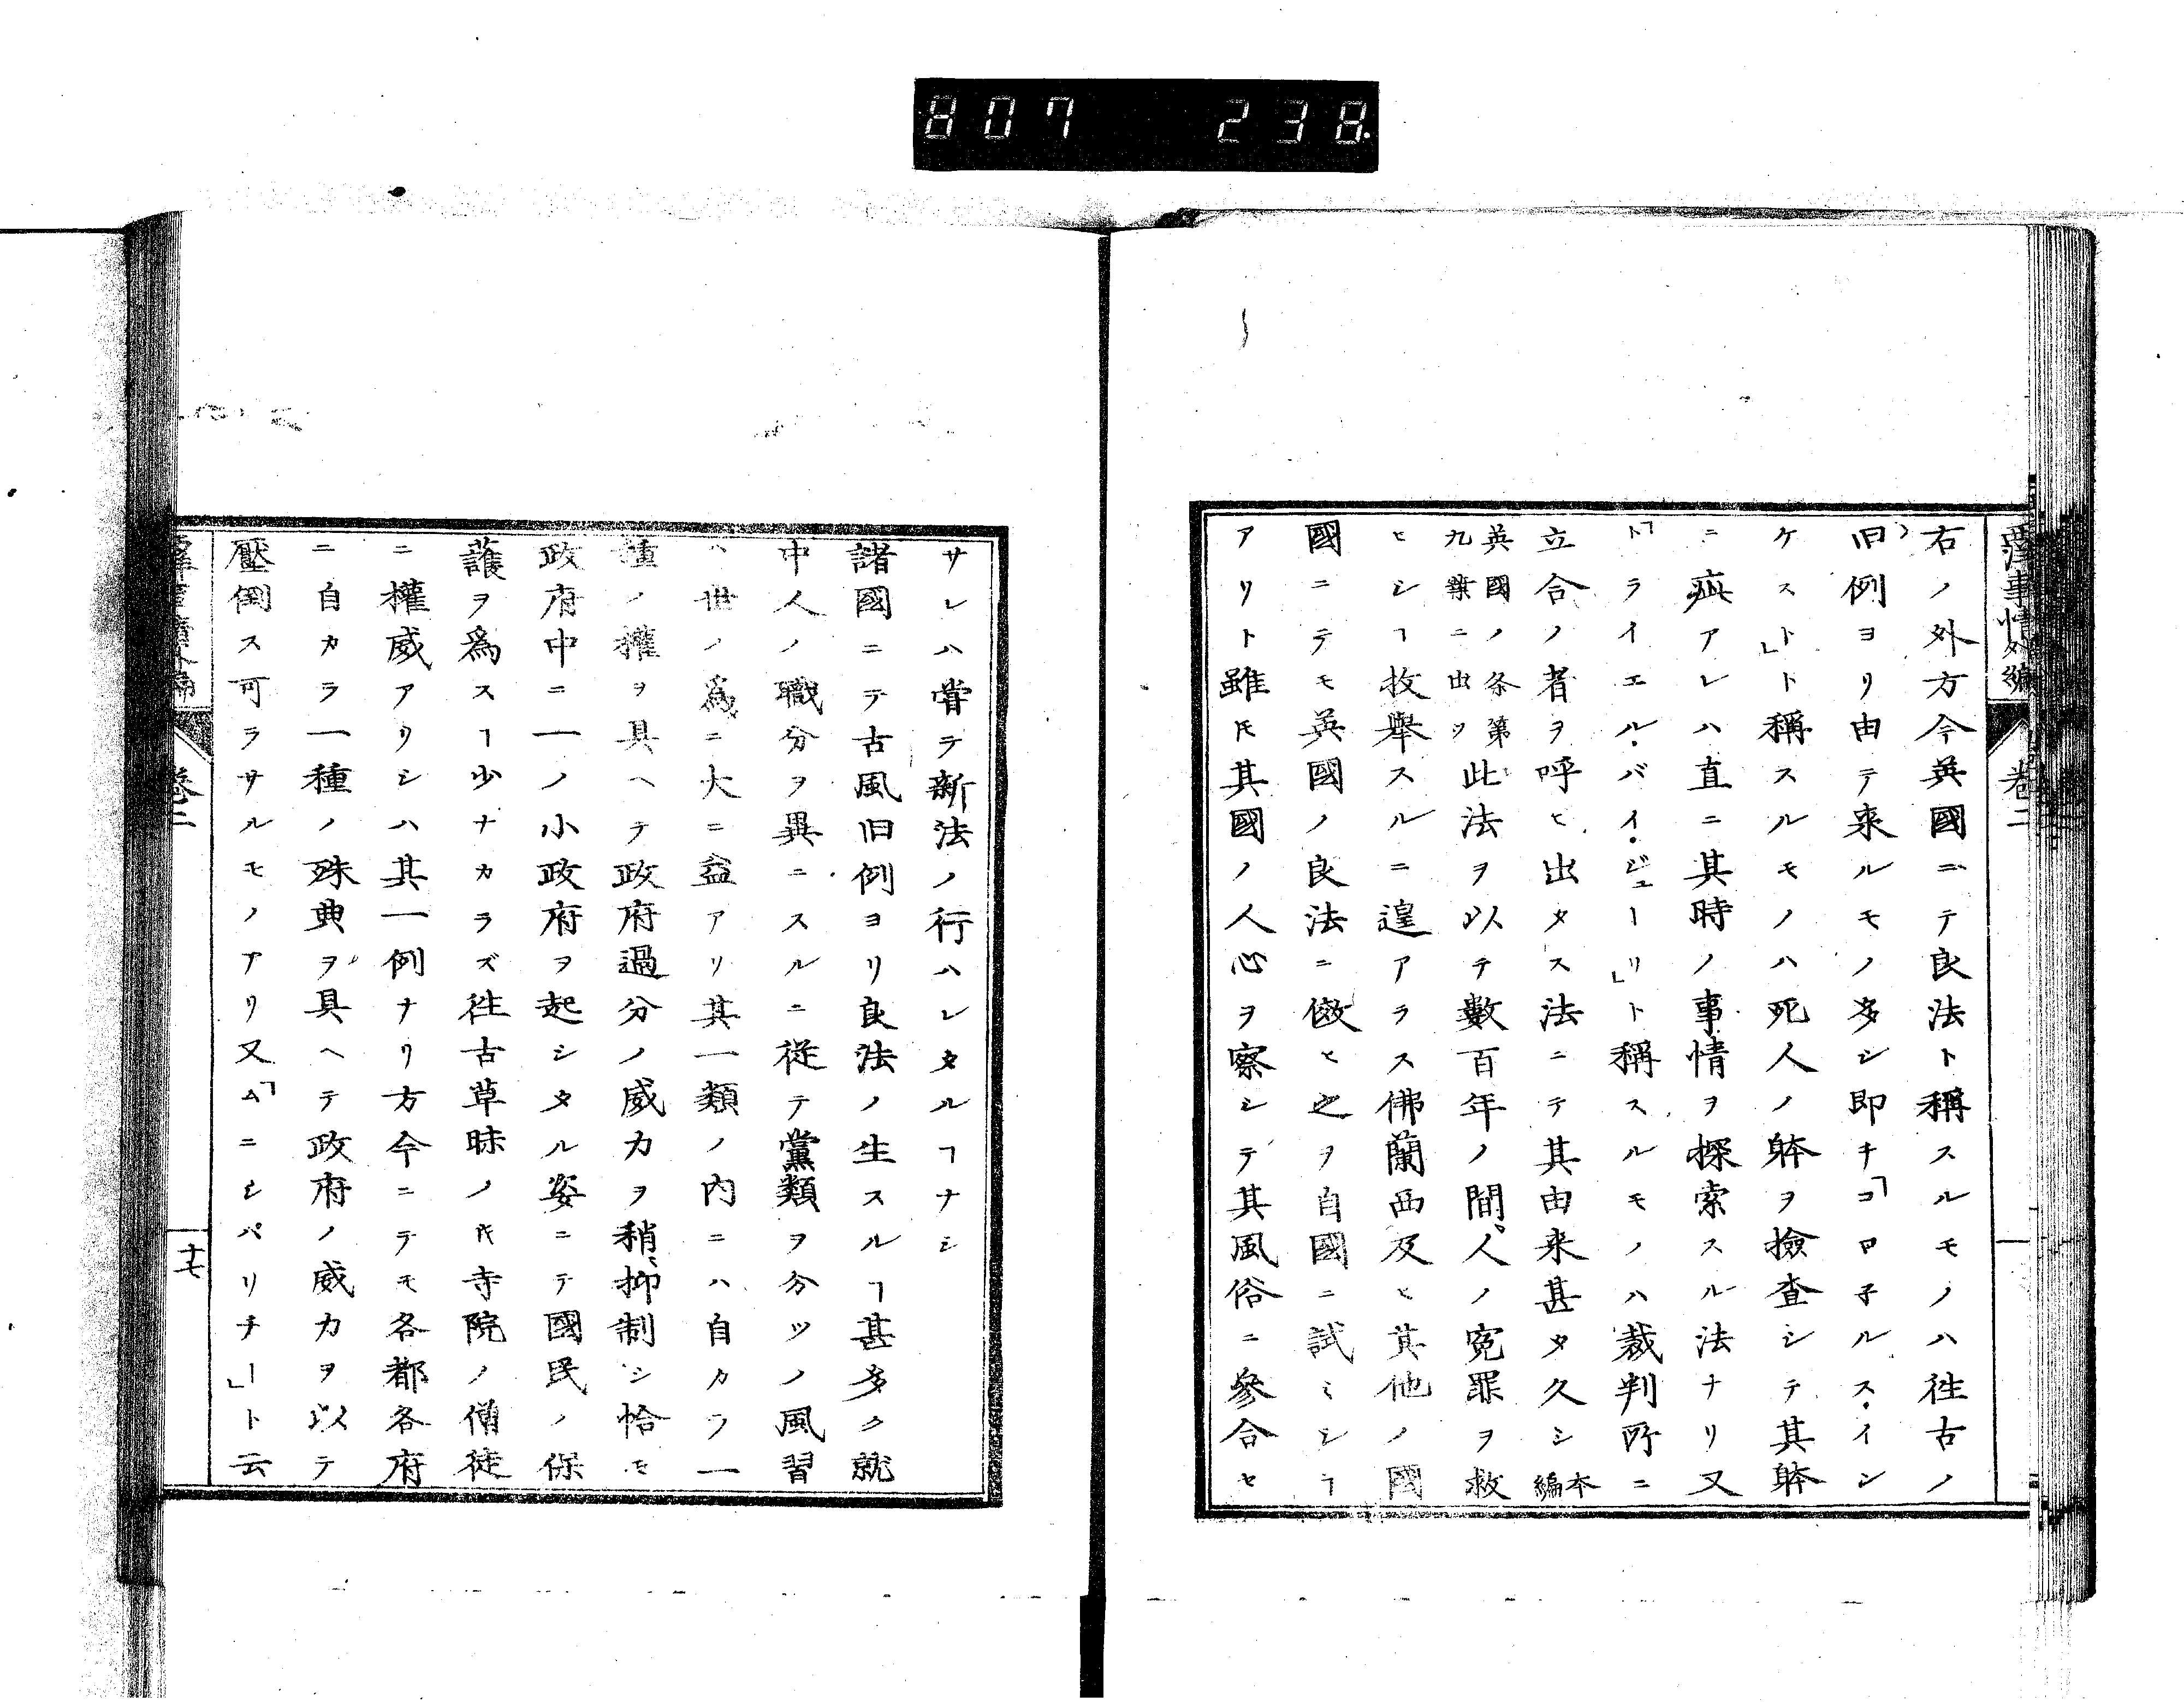 807 238
西洋事情外編 卷二
右ノ外方今英國ニテ良法ト稱スルモノハ徃古ノ
旧例ヨリ由テ来ルモノ多シ即チ「コロ子ルス・イン
ケスト」ト稱スルモノハ死人ノ躰ヲ撿査シテ其躰
ニ疵アレハ直ニ其時ノ事情ヲ探索スル法ナリ又
「トライエル・バイ・ジューリ」ト稱スルモノハ裁判所ニ
立合ノ者ヲ呼ヒ出タス法ニテ其由来甚タ久シ本編
英國ノ条第九葉ニ出ツ此法ヲ以テ數百年ノ間人ノ寃罪ヲ救
ヒシヿ枚舉スルニ遑アラス佛蘭西及ヒ其他ノ國
國ニテモ英國ノ良法ニ倣ヒ之ヲ自國ニ試ミシヿ
アリト雖𪜈其國ノ人心ヲ察シテ其風俗ニ參合セ
サレハ嘗テ新法ノ行ハレタルヿナシ
諸國ニテ古風旧例ヨリ良法ノ生スルヿ甚多ク就
中人ノ職分ヲ異ニスルニ從テ黨類ヲ分ツノ風習
ハ世ノ爲ニ大ニ益アリ其一類ノ内ニハ自カラ一
種ノ權ヲ具ヘテ政府過分ノ威力ヲ稍〻抑制シ恰モ
政府中ニ一ノ小政府ヲ起シタル姿ニテ國民ノ保
護ヲ爲スヿ少ナカラズ徃古草昧ノ𪜈寺院ノ僧徒
ニ權威アリシハ其一例ナリ方今ニテモ各都各府
ニ自カラ一種ノ殊典ヲ具ヘテ政府ノ威力ヲ以テ
壓倒ス可ラサルモノアリ又「ムニシパリチー」ト云
卷二
十七